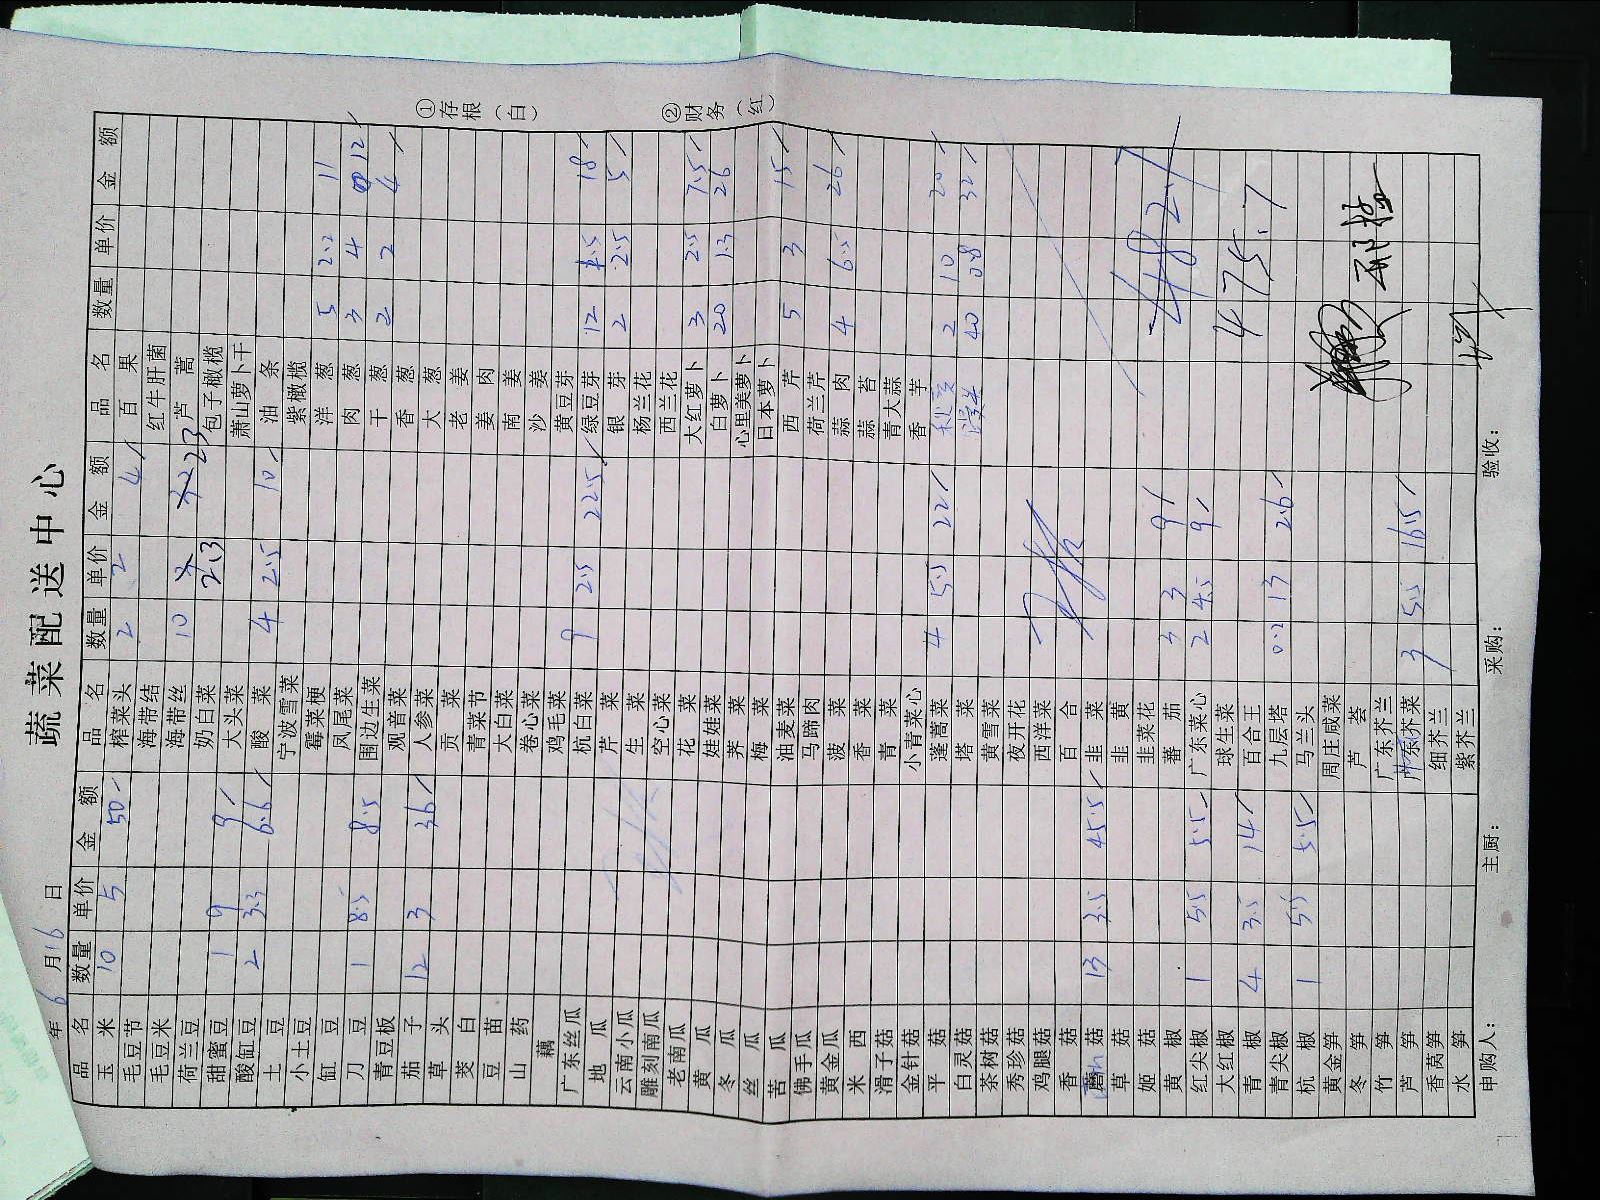 蔬菜配送中心
年 6 月 16 日
品名 数量 单价 金额 品名 数量 单价 金额 品名 数量 单价 金额
玉米 10 5 50 榨菜头 2 2 4 百果
毛豆节 海带结 红牛肝菌
毛豆米 海带丝 10 芦蒿
荷兰豆 奶白菜 2.3 23 包子橄榄
甜蜜豆 1 9 9 大头菜 萧山萝卜干
酸缸豆 2 3.3 6.6 酸菜 4 2.5 10 油条
土豆 宁波雪菜 紫橄榄
小土豆 霉菜梗 洋葱 5 2.2 11
缸豆 凤尾菜 肉葱 3 4 12
刀豆 1 8.5 8.5 围边生菜 干葱 2 2 4
青豆板 观音菜 香葱
茄子 12 3 36 人参菜 大葱
草头 贡菜 老姜
茭白 青菜节 姜肉
豆苗 大白菜 南姜
山药 卷心菜 沙姜
藕 鸡毛菜 黄豆芽
广东丝瓜 杭白菜 9 2.5 22.5 绿豆芽 12 1.5 18
地瓜 芹菜 银芽 2 2.5 5
云南小瓜 生菜 杨兰花
雕刻南瓜 空心菜 西兰花
老南瓜 花菜 大红萝卜 3 2.5 7.5
黄瓜 娃娃菜 白萝卜 20 1.3 26
冬瓜 荠菜 心里美萝卜
丝瓜 梅菜 日本萝卜
苦瓜 油麦菜 西芹 5 3 15
佛手瓜 马蹄肉 荷兰芹
黄金瓜 菠菜 蒜肉 4 6.5 26
米西 香菜 蒜苔
滑子菇 青菜 青大蒜
金针菇 小青菜心 香芋
平菇 蓬蒿菜 4 5.5 22 2 10 20
白灵菇 塔菜 40 0.8 32
茶树菇 黄雪菜
秀珍菇 夜开花
鸡腿菇 西洋菜
香菇 百合
蘑菇 13 3.5 45.5 韭菜
草菇 韭黄
姬菇 韭菜花
黄椒 蕃茄 3 3 9 482.7
红尖椒 1 5.5 5.5 广东菜心 2 4.5 9
大红椒 球生菜 475.7
青椒 4 3.5 14 百合王
青尖椒 九层塔 0.2 13 2.6
杭椒 1 5.5 5.5 马兰头
黄金笋 周庄咸菜
冬笋 芦荟
竹笋 广东芥兰
芦笋 广东芥菜 3 5.5 16.5
香莴笋 细芥兰
水笋 紫芥兰
申购人： 主厨： 采购： 验收：
①存根（白）
②财务（红）